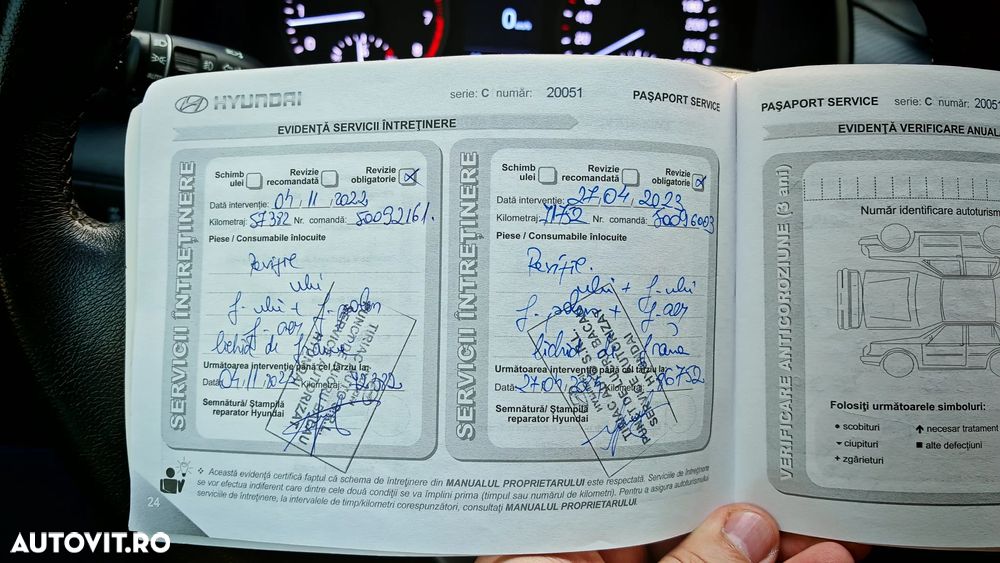 0 km/h
HYUNDAI
serie: C număr: 20051
PAŞAPORT SERVICE
EVIDENŢĂ SERVICII ÎNTREŢINERE
SERVICII ÎNTREŢINERE
Schimb ulei
Revizie recomandată
Revizie obligatorie
Dată intervenţie: 04,11,2022
Kilometraj: 57322 Nr. comandă: 50092161.
Piese / Consumabile înlocuite
Revizie
ulei
f-ulei +
f-aer
lichid de
Următoarea intervenţie până cel târziu la:
Dată: 04.11 Kilometraj: 72322
Semnătură/ Ştampilă
reparator Hyundai
SERVICII ÎNTREŢINERE
Schimb ulei
Revizie recomandată
Revizie obligatorie
Dată intervenţie: 27,04,2023
Kilometraj: 71752 Nr. comandă: 50096003
Piese / Consumabile înlocuite
Revizie.
ulei + f-ulei
f-polen + f-aer
lichid de frana
Următoarea intervenţie până cel târziu la:
Dată: 27.04 Kilometraj: 86752
Semnătură/ Ştampilă
reparator Hyundai
Această evidenţă certifică faptul că schema de întreţinere din MANUALUL PROPRIETARULUI este respectată. Serviciile de întreţinere
se vor efectua indiferent care dintre cele două condiţii se va împlini prima (timpul sau numărul de kilometri). Pentru a asigura autoturismului
serviciile de întreţinere, la intervalele de timp/kilometri corespunzători, consultaţi MANUALUL PROPRIETARULUI.
24
PAŞAPORT SERVICE serie: C număr: 20051
EVIDENŢĂ VERIFICARE ANUAL
VERIFICARE ANTICOROZIUNE (3 ani)
Număr identificare autoturism
Folosiţi următoarele simboluri:
• scobituri
necesar tratament
ciupituri
■ alte defecţiuni
+ zgârieturi
AUTOVIT.RO